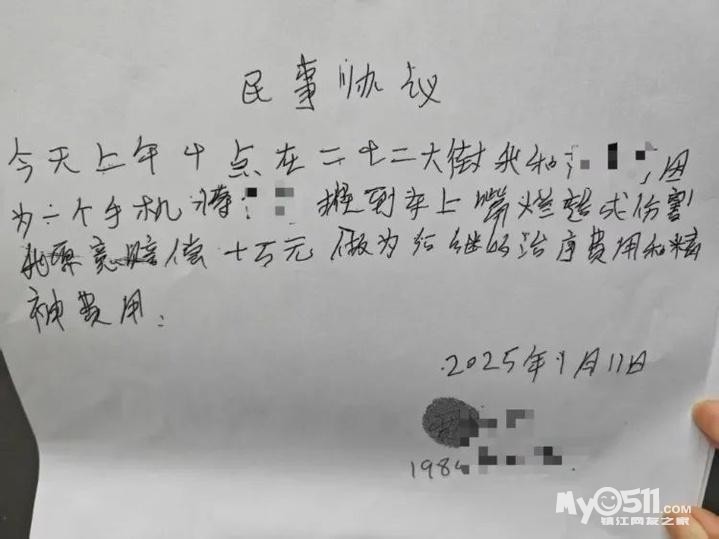 民事协议
今天上午十点在二十二大街我和,因
为一个手机将 摁到车上嘴烂造成伤害
我愿意赔偿十万元做为后继的治疗费用和精
神费用.
2025年9月11日
198
My0511.com
镇江网友之家